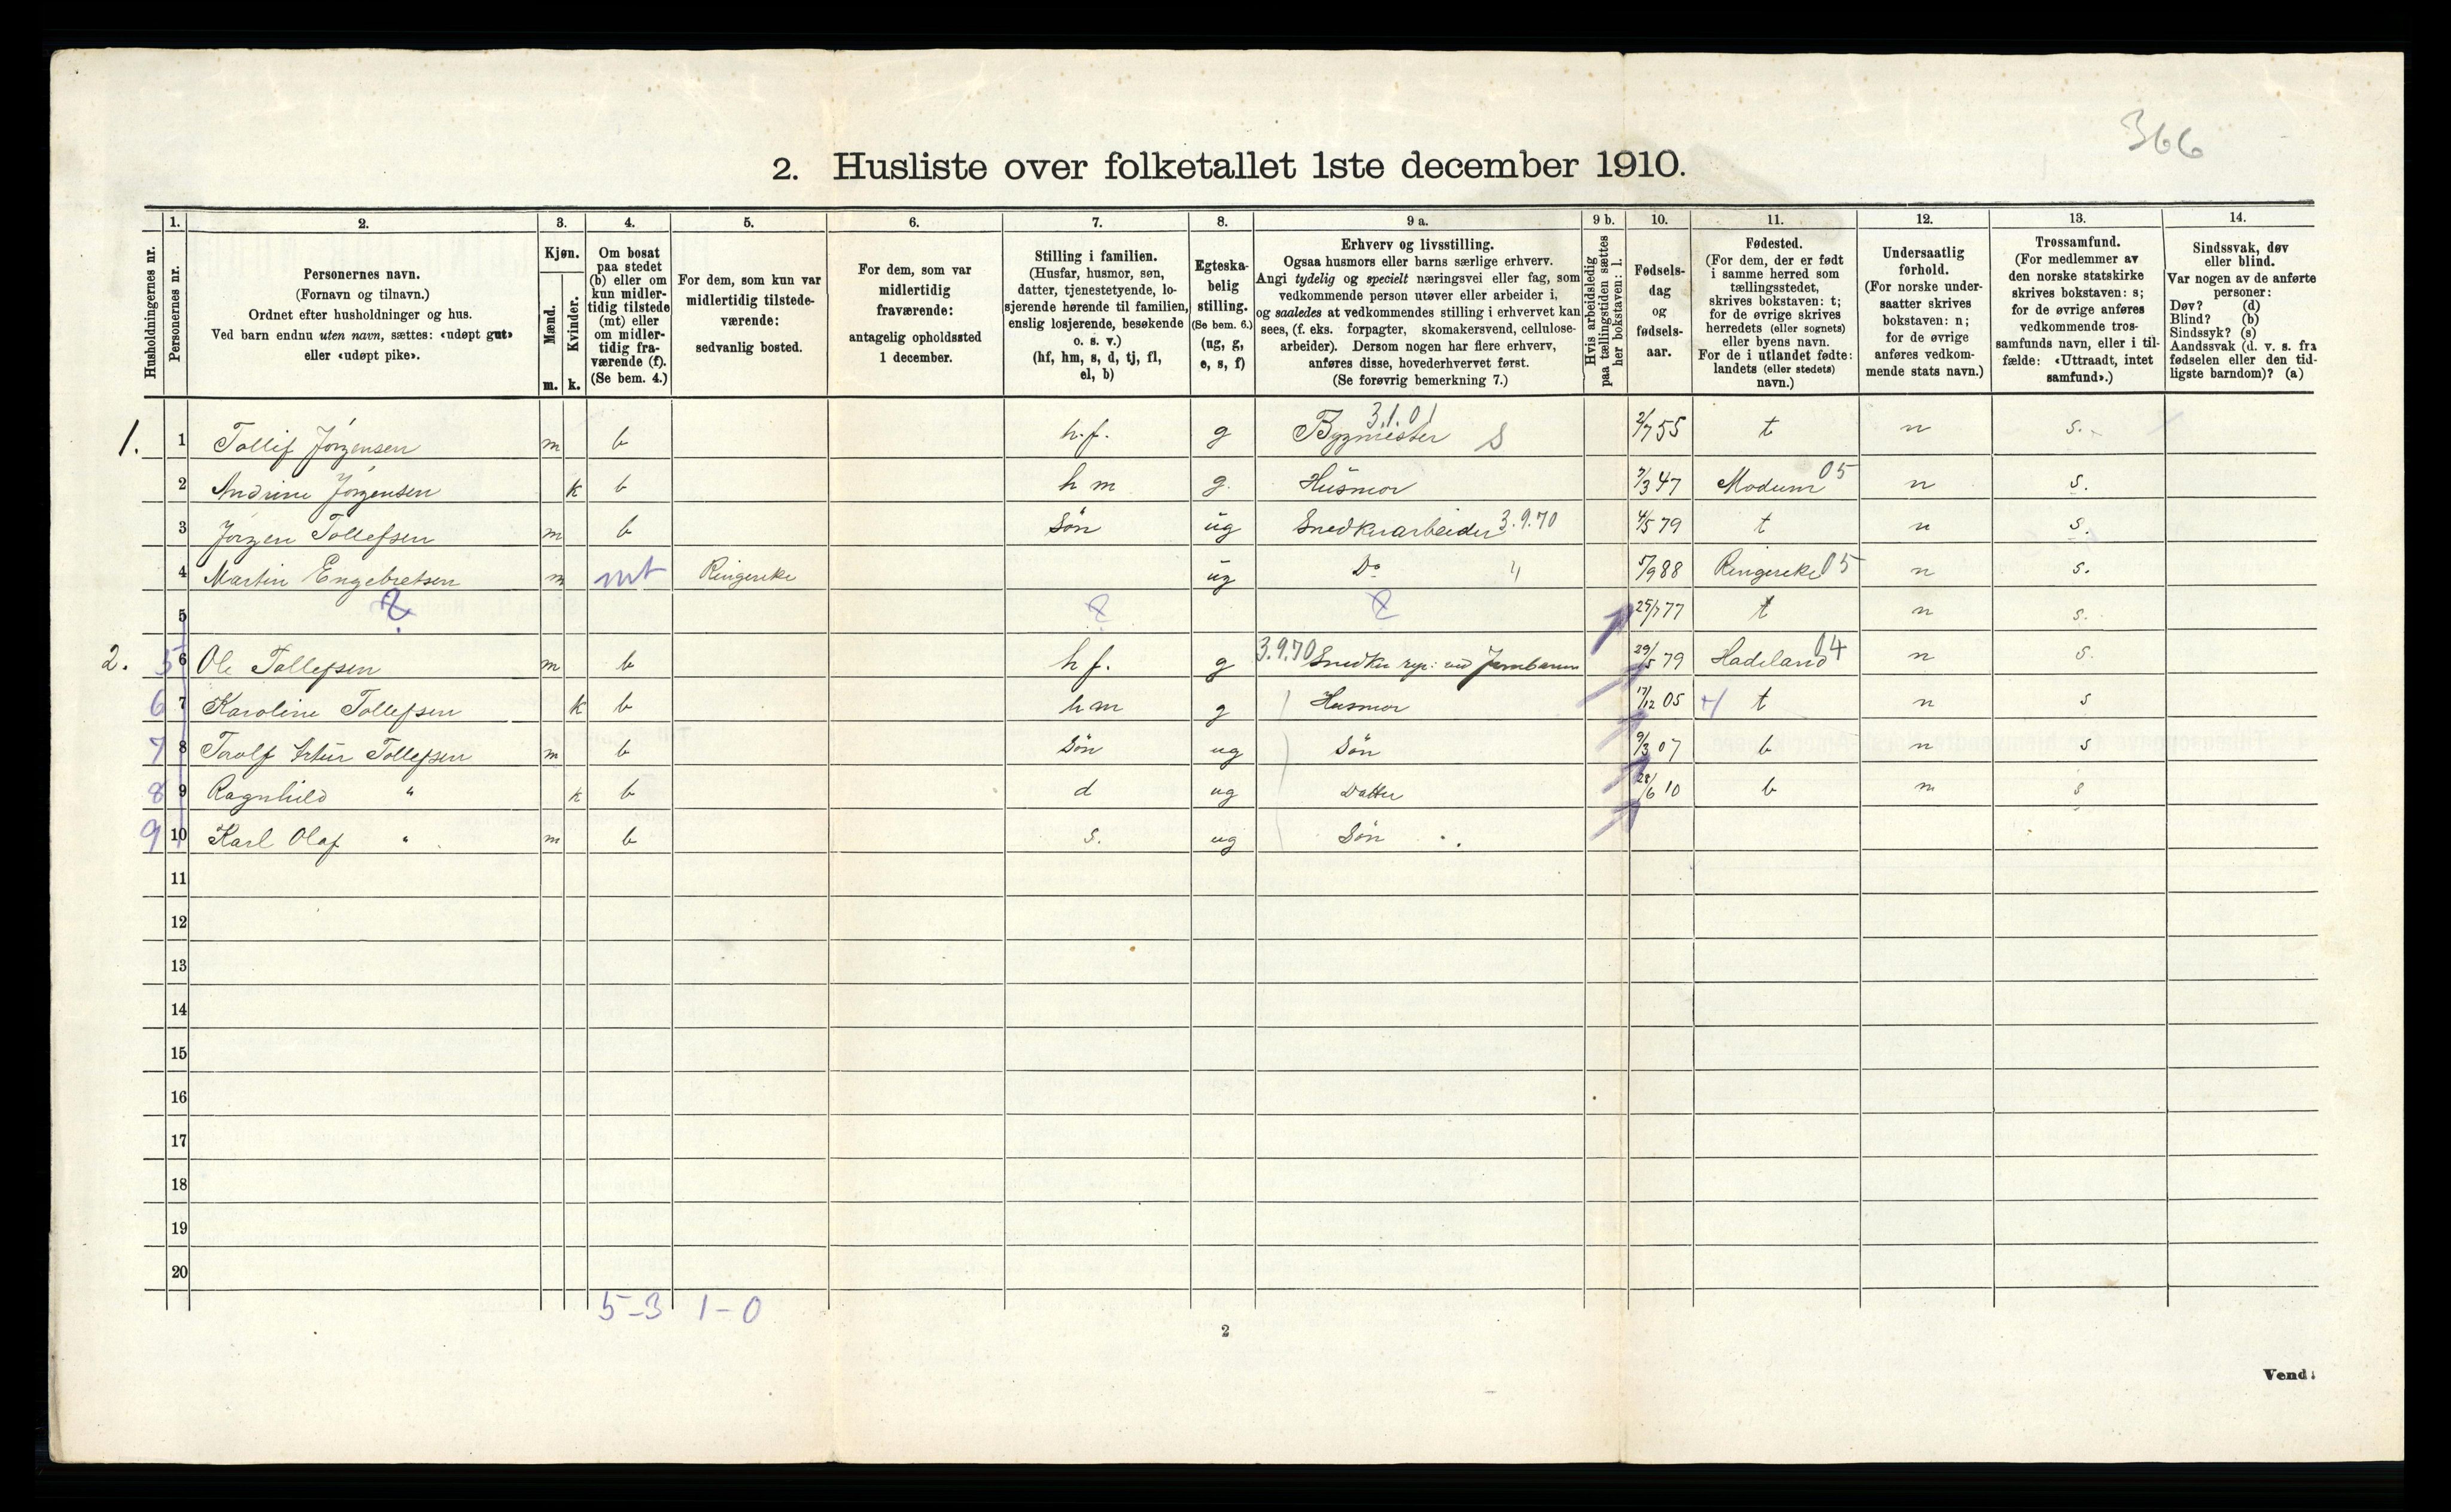 366
2. Husliste over folketallet 1ste december 1910.
Husholdningernes nr.
1.
Personernes nr.
2.
Personernes navn.
(Fornavn og tilnavn.)
Ordnet efter husholdninger og hus.
Ved barn endnu uten navn, sættes: «udøpt gut»
eller «udøpt pike».
3.
Kjøn.
Mænd.
Kvinder.
m. k.
4.
Om bosat
paa stedet
(b) eller om
kun midler-
tidig tilstede
(mt) eller
om midler-
tidig fra-
værende (f).
(Se bem. 4.)
5.
For dem, som kun var
midlertidig tilstede-
værende:
sedvanlig bosted.
6.
For dem, som var
midlertidig
fraværende:
antagelig opholdssted
1 december.
7.
Stilling i familien.
(Husfar, husmor, søn,
datter, tjenestetyende, lo-
sjerende hørende til familien,
enslig losjerende, besøkende
o. s. v.)
(hf, hm, s, d, tj, fl,
el, b)
8.
Egteska-
belig
stilling.
(Se bem. 6.)
(ug, g,
e, s, f)
9 a.
Erhverv og livsstilling.
Ogsaa husmors eller barns særlige erhverv.
Angi tydelig og specielt næringsvei eller fag, som
vedkommende person utøver eller arbeider i,
og saaledes at vedkommendes stilling i erhvervet kan
sees, (f. eks. forpagter, skomakersvend, cellulose-
arbeider). Dersom nogen har flere erhverv,
anføres disse, hovederhvervet først.
(Se forøvrig bemerkning 7.)
9 b.
Hvis arbeidsledig
paa tællingstiden sættes
her bokstaven: l.
10.
Fødsels-
dag
og
fødsels-
aar.
11.
Fødested.
(For dem, der er født
i samme herred som
tællingsstedet,
skrives bokstaven: t;
for de øvrige skrives
herredets (eller sognets)
eller byens navn.
For de i utlandet fødte:
landets (eller stedets)
navn.)
12.
Undersaatlig
forhold.
(For norske under-
saatter skrives
bokstaven: n;
for de øvrige
anføres vedkom-
mende stats navn.)
13.
Trossamfund.
(For medlemmer av
den norske statskirke
skrives bokstaven: s;
for de øvrige anføres
vedkommende tros-
samfunds navn, eller i til-
fælde: «Uttraadt, intet
samfund».)
14.
Sindssvak, døv
eller blind.
Var nogen av de anførte
personer:
Døv? (d)
Blind? (b)
Sindssyk? (s)
Aandssvak (d. v. s. fra
fødselen eller den tid-
ligste barndom)? (a)
1. 1 Tollif Jørgensen m b h.f. g Bygmester 3.1.01 S 2/7 55 t n s.
2 Andrine Jørgensen k b h m g. Husmor 7/3 47 Modum 05 n s.
3 Jørgen Tollefsen m b Søn ug Snedkerarbeider 3.9.70 4/5 79 t n s.
4 Martin Engebretsen m mt Ringerike ug Do 4 5/9 88 Ringerike 05 n s.
5 ? ? ? 25/1 77 t n s.
2. 5 6 Ole Tollefsen m b h f. g 3.9.70 Snedker rep: ved Jernbanen 29/5 79 Hadeland 04 n s.
6 7 Karoline Tollefsen k b h m g Husmor 17/12 05 t n s
7 8 Tholf Artur Tollefsen m b Søn ug Søn 9/3 07 b n s
8 9 Ragnhild " k b d ug Datter 28/6 10 b n s
9 10 Karl Olaf " m b s. ug Søn
11
12
13
14
15
16
17
18
19
20
5-3 1-0
2
Vend!